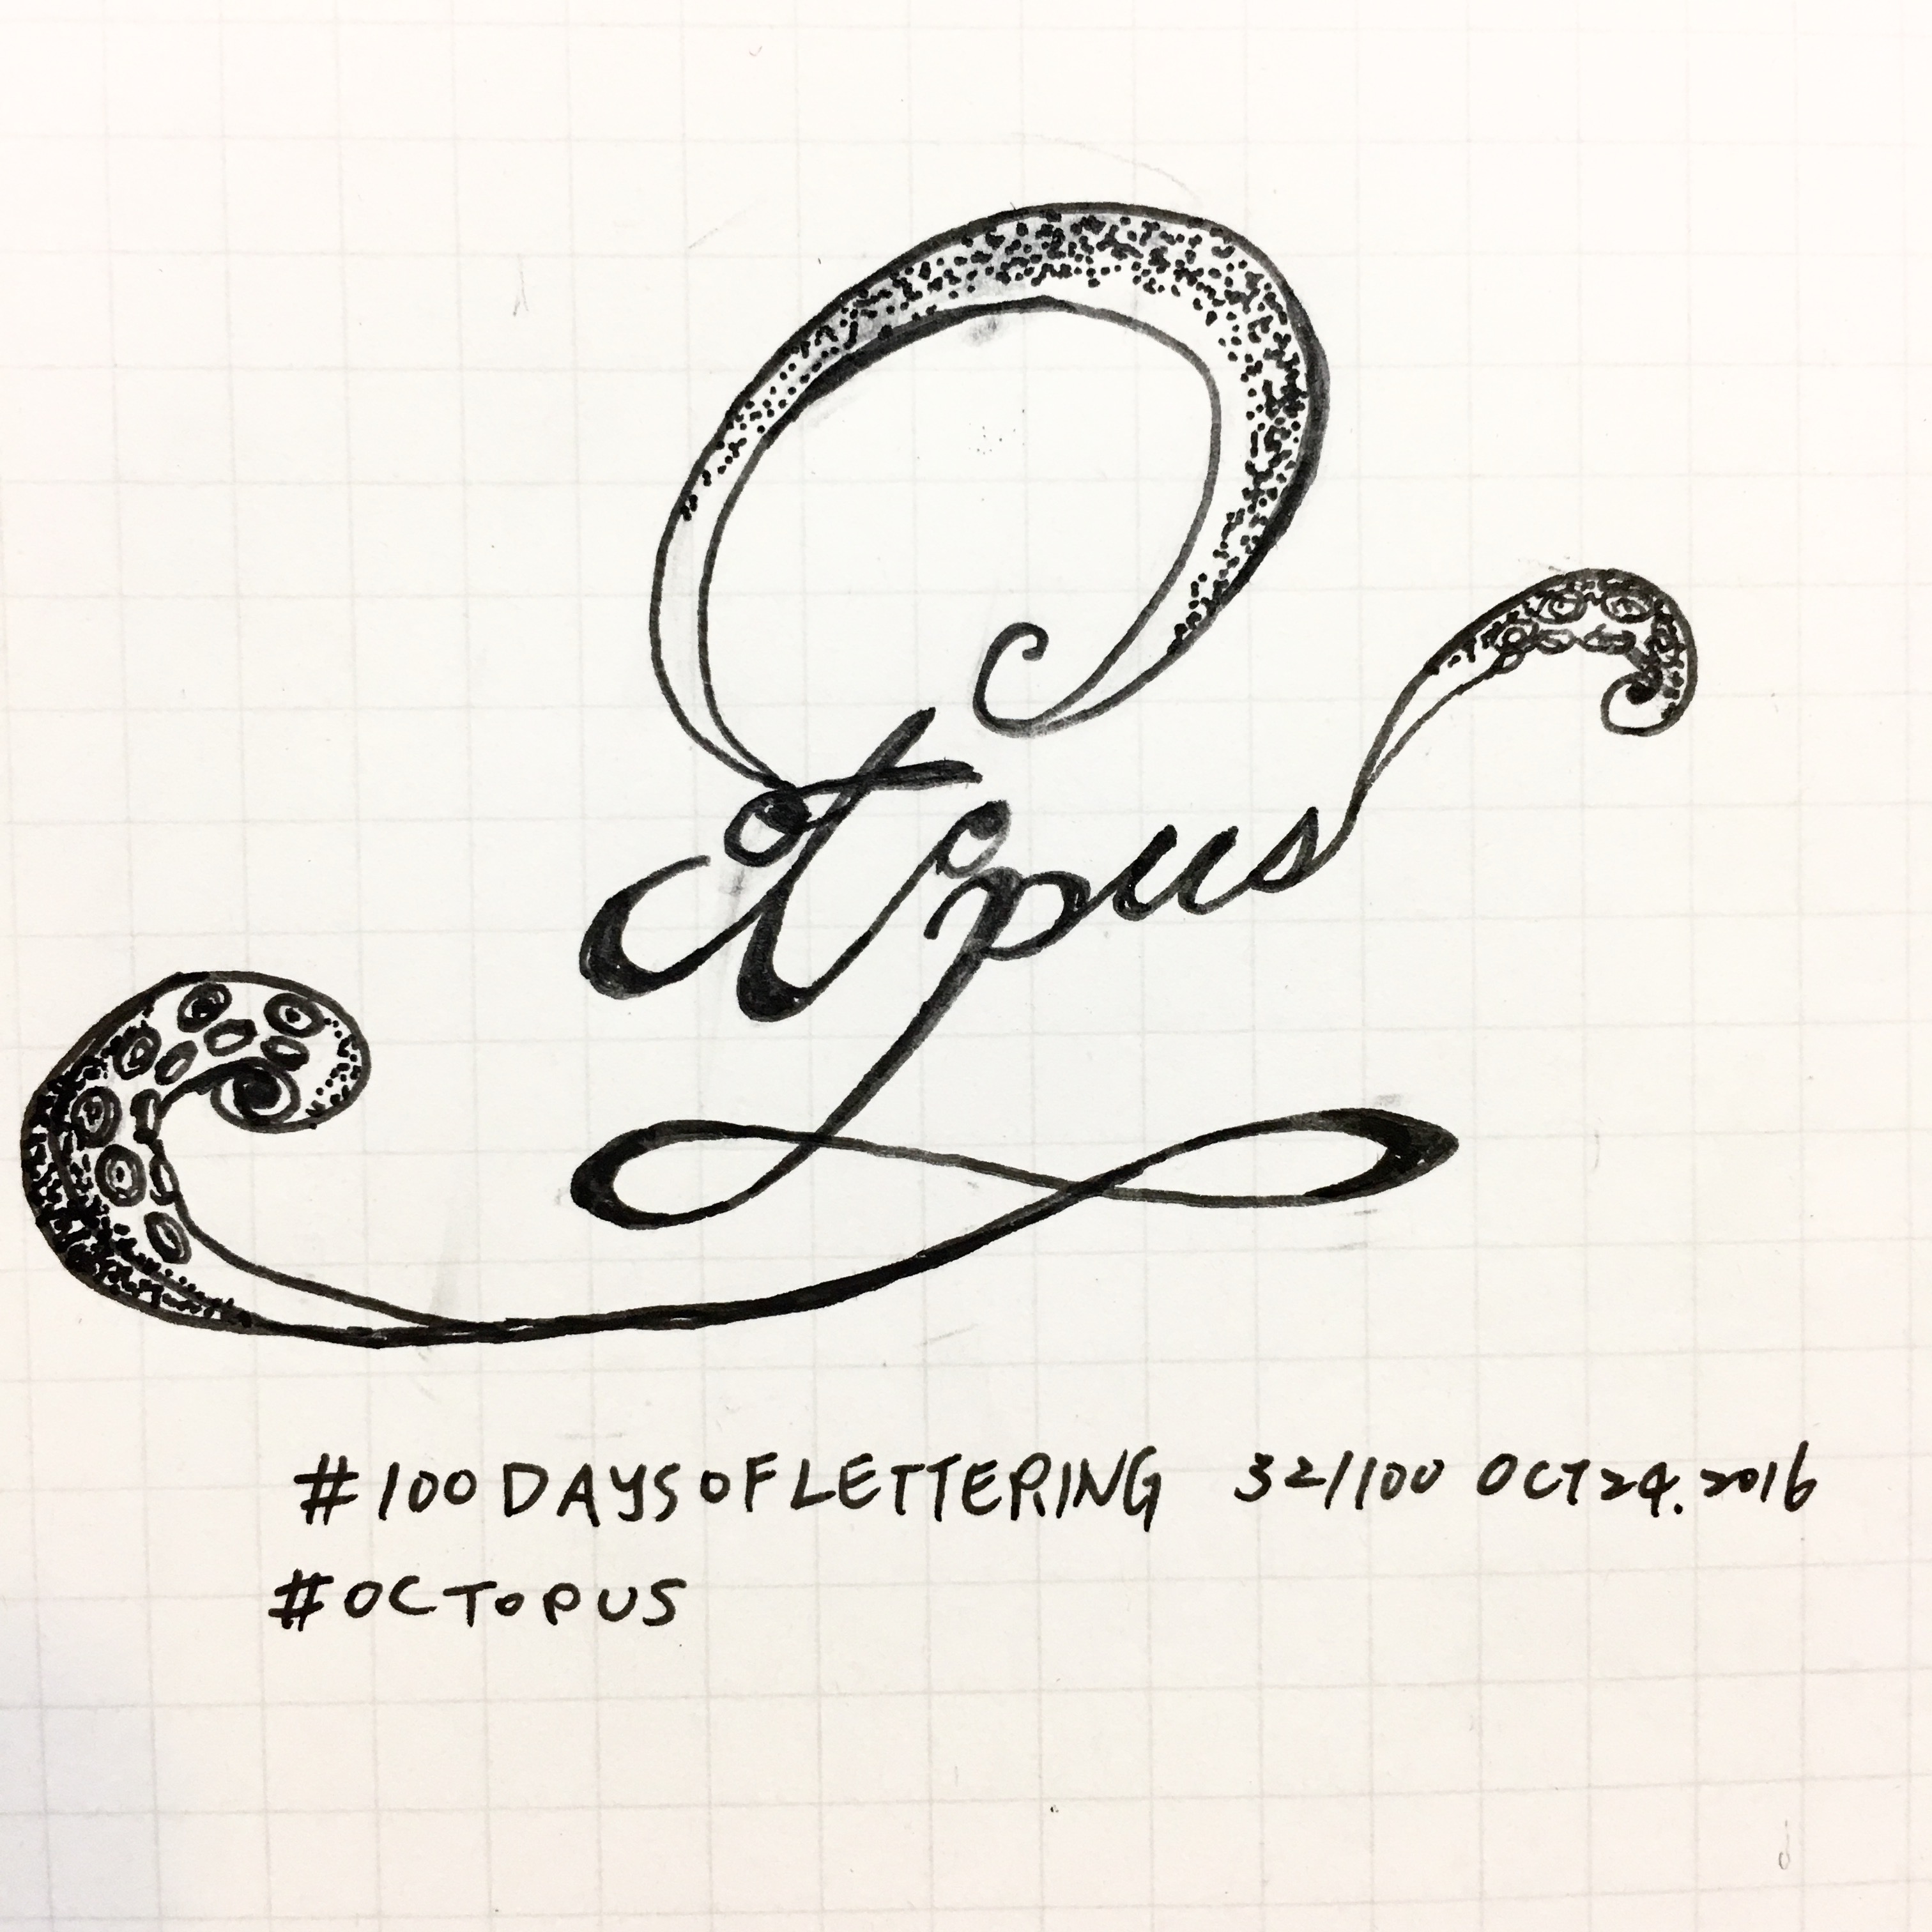 Octopus
#100DAYSOFLETTERING 32/100 OCT24.2016
#OCTOPUS